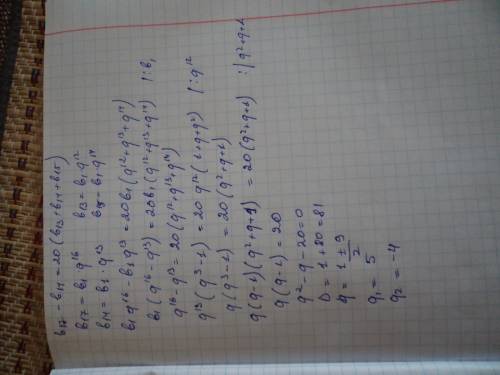 b17 - b14 = 20 (b13 + b14 + b15)
b17 = b1 · q^16 b13 = b1 · q^12
b14 = b1 · q^13 b15 = b1 · q^14
b1 q^16 - b1 q^13 = 20 b1 (q^12 + q^13 + q^14)
b1 (q^16 - q^13) = 20 b1 (q^12 + q^13 + q^14) | : b1
q^16 - q^13 = 20 (q^12 + q^13 + q^14)
q^13 (q^3 - 1) = 20 q^12 (1 + q + q^2) | : q^12
q (q^3 - 1) = 20 (q^2 + q + 1)
q (q - 1) (q^2 + q + 1) = 20 (q^2 + q + 1) : | q^2 + q + 1
q (q - 1) = 20
q^2 - q - 20 = 0
D = 1 + 80 = 81
q = (1 ± 9)/2
q1 = 5
q2 = -4